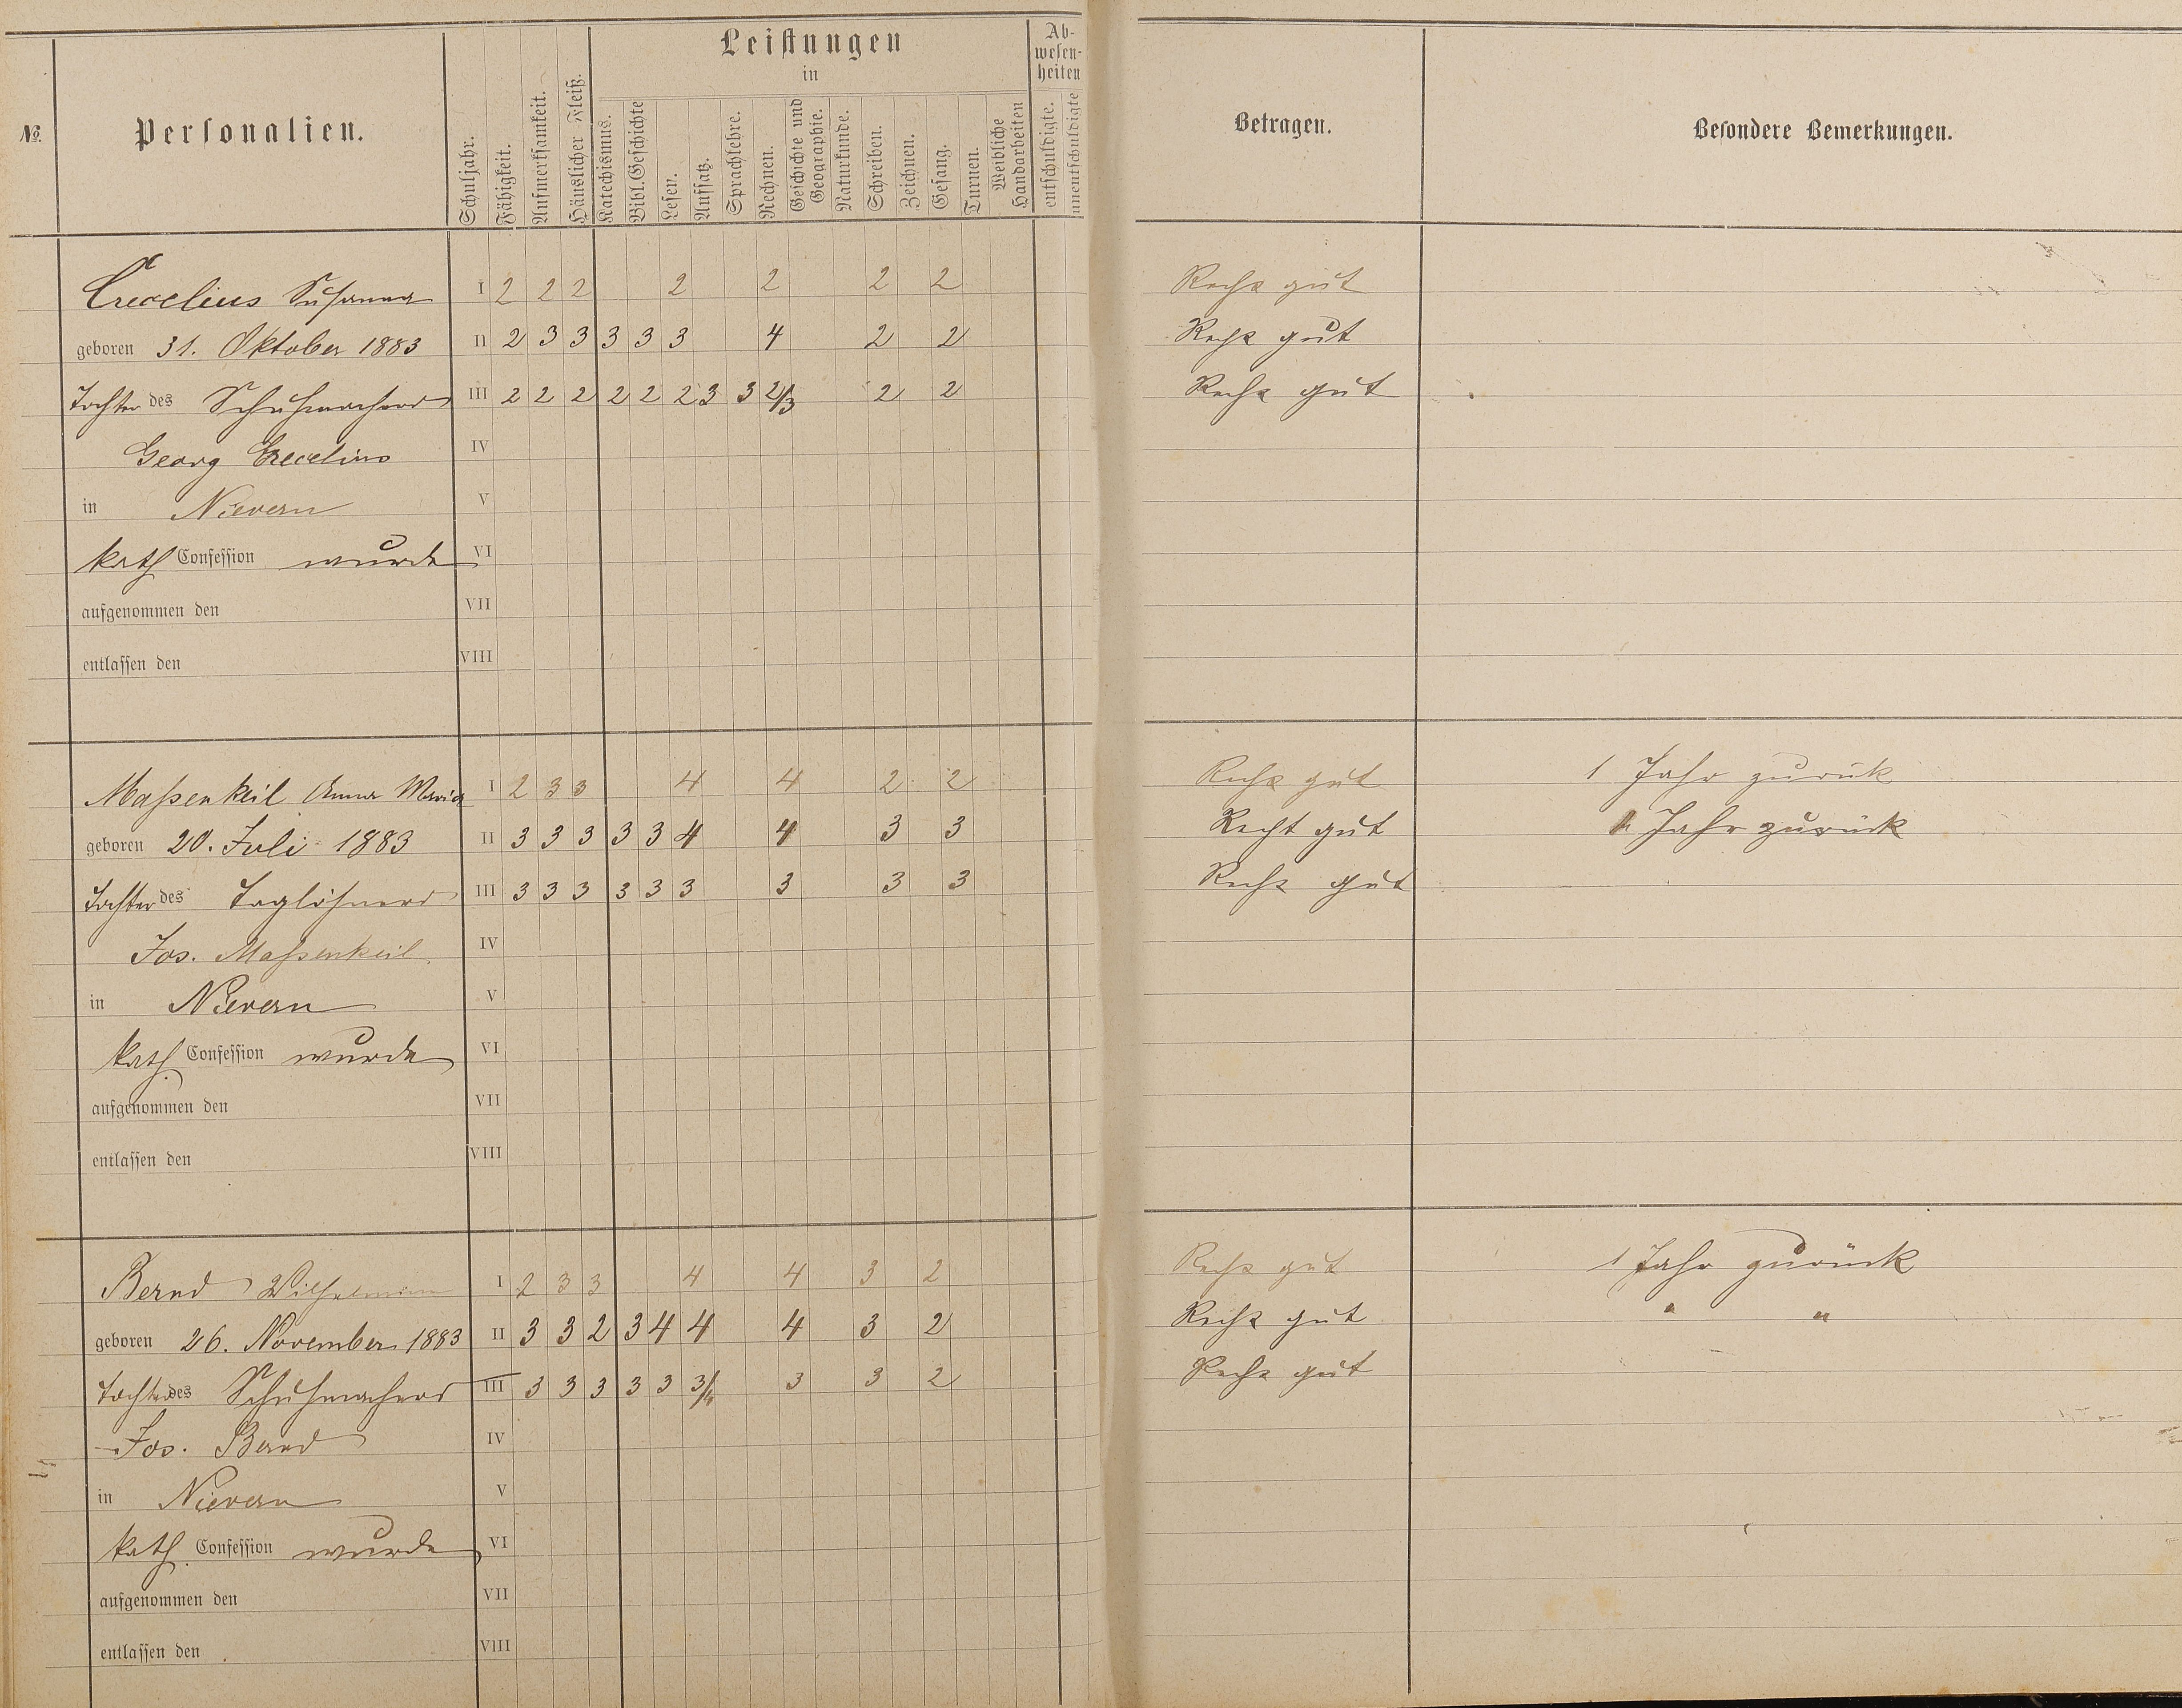 №.
Personalien.
Schuljahr.
Fähigkeit.
Aufmerksamkeit.
Häuslicher Fleiß.
Leistungen
in
Katechismus.
Bibl. Geschichte
Lesen.
Aufsatz.
Sprachlehre.
Rechnen.
Geschichte und
Geographie.
Naturkunde.
Schreiben.
Zeichnen.
Gesang.
Turnen.
Weibliche
Handarbeiten
Ab-
wesen-
heiten
entschuldigte.
unentschuldigte
Betragen.
Besondere Bemerkungen.
Crecelius Susanna I 2 2 2 2 2 2 2 Recht gut
geboren 31. Oktober 1883 II 2 3 3 3 3 3 4 2 2 Recht gut
Tochter des Schuhmachers III 2 2 2 2 2 2 3 3 2/3 2 2 Recht gut
Georg Crecelius IV
in Nievern V
kath Confession wurde VI
aufgenommen den VII
entlassen den VIII
Maßenkeil Anna Maria I 2 3 3 4 4 2 2 Recht gut 1 Jahr zurück
geboren 20. Juli 1883 II 3 3 3 3 3 4 4 3 3 Recht gut 1 Jahr zurück
Tochter des Taglöhners III 3 3 3 3 3 3 3 3 3 Recht gut
Jos. Maßenkeil. IV
in Nievern V
kath. Confession wurde VI
aufgenommen den VII
entlassen den VIII
Bernd Wilhelmine I 2 3 3 4 4 3 2 Recht gut 1 Jahr zurück
geboren 26. November 1883 II 3 3 2 3 4 4 4 3 2 Recht gut " "
Tochter des Schuhmachers III 3 3 3 3 3 3/4 3 3 2 Recht gut
Jos. Bernd IV
in Nievern V
kath. Confession wurde VI
aufgenommen den VII
entlassen den VIII